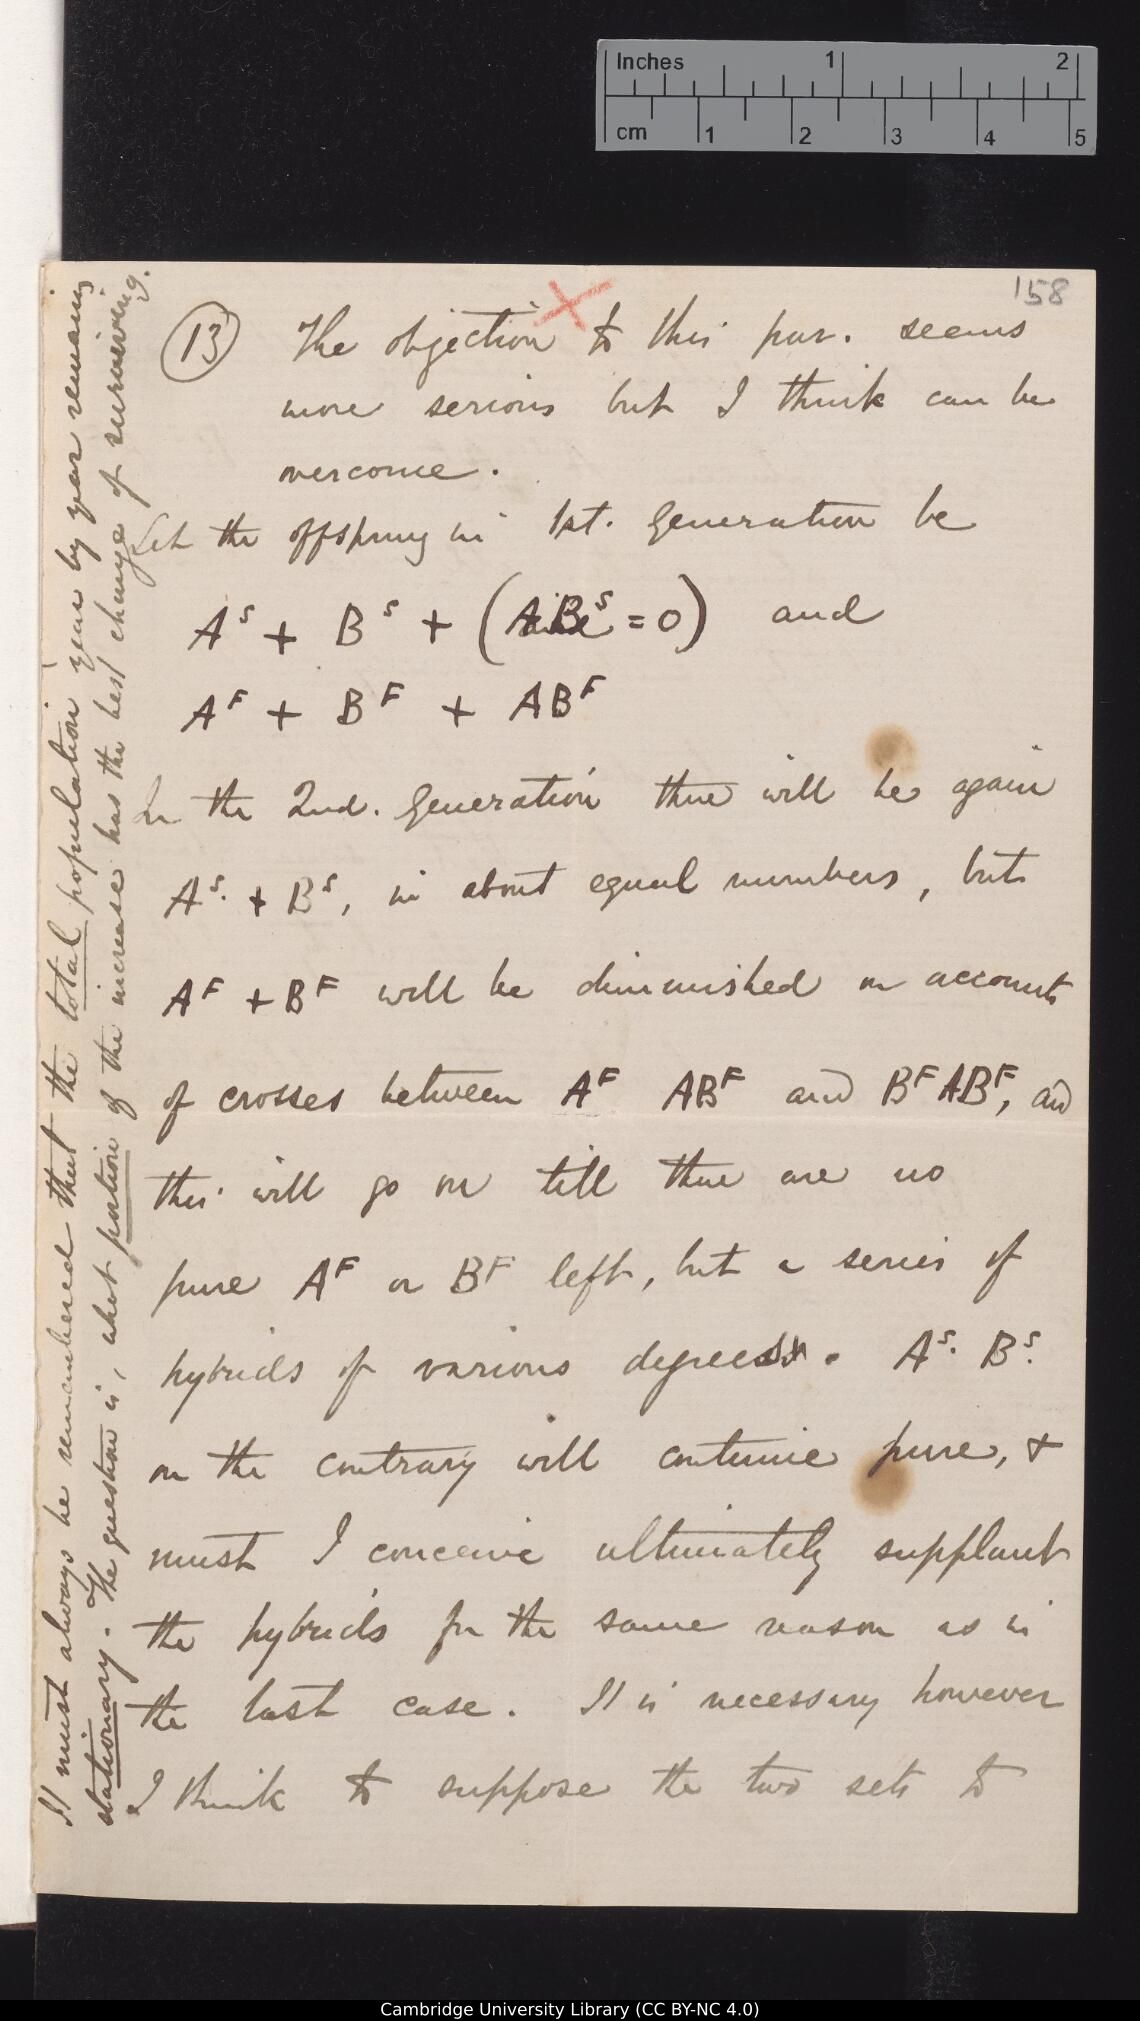 Inches 1 2
cm 1 2 3 4 5
158
(13) The objection to this par. seems
more serious but I think can be
overcome.
Let the offspring in 1st. Generation be
A^S + B^S + (AB^S = 0) and
A^F + B^F + AB^F
In the 2nd. Generation there will be again
A^S. + B^S, in about equal numbers, but
A^F + B^F will be diminished on account
of crosses between A^F AB^F and B^F AB^F, and
this will go on till there are no
pure A^F or B^F left, but a series of
hybrids of various degrees. A^S. B^S.
on the contrary will continue pure, &
must I conceive ultimately supplant
the hybrids for the same reason as in
the last case. It is necessary however
I think to suppose the two sets to
It must always be remembered that the total population year by year remains
stationary. The question is, what portion of the increase has the best chance of surviving.
Cambridge University Library (CC BY-NC 4.0)